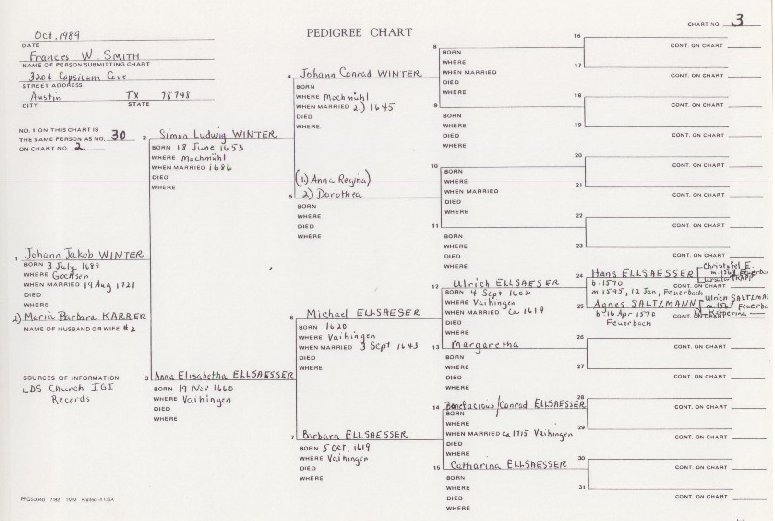 PEDIGREE CHART
CHART NO. 3
Oct, 1989
DATE
Frances W. SMITH
NAME OF PERSON SUBMITTING CHART
3206 Capsicum Cove
STREET ADDRESS
Austin TX 78748
CITY STATE
NO. 1 ON THIS CHART IS
THE SAME PERSON AS NO. 30
ON CHART NO. 2
1 Johann Jakob WINTER
BORN 3 July 1689
WHERE
WHEN MARRIED 19 Aug 1721
DIED
WHERE
2) Maria Barbara KARRER
NAME OF HUSBAND OR WIFE #2
SOURCES OF INFORMATION
LDS Church IGI
Records
2 Simon Ludwig WINTER
BORN 18 June 1653
WHERE Mochmühl
WHEN MARRIED 1686
DIED
WHERE
3 Anna Elisabetha ELLSAESSER
BORN 19 Nov 1660
WHERE Vaihingen
DIED
WHERE
4 Johann Conrad WINTER
BORN
WHERE Mochmühl
WHEN MARRIED 2) 1645
DIED
WHERE
(1.) Anna Regina)
5 2) Dorothea
BORN
WHERE
DIED
WHERE
6 Michael ELLSAESER
BORN 1620
WHERE Vaihingen
WHEN MARRIED 3 Sept 1643
DIED
WHERE
7 Barbara ELLSAESSER
BORN 5 Oct. 1619
WHERE Vaihingen
DIED
WHERE
8
BORN
WHERE
WHEN MARRIED
DIED
WHERE
9
BORN
WHERE
DIED
WHERE
10
BORN
WHERE
WHEN MARRIED
DIED
WHERE
11
BORN
WHERE
DIED
WHERE
12 Ulrich ELLSAESER
BORN 4 Sept 1602
WHERE Vaihingen
WHEN MARRIED ca 1619
DIED
WHERE
13 Margaretha
BORN
WHERE
DIED
WHERE
14 Bonefacious/Conrad ELLSAESSER
BORN
WHERE
WHEN MARRIED ca 1715 Vaihingen
DIED
WHERE
15 Catharina ELLSAESSER
BORN
WHERE
DIED
WHERE
16
CONT. ON CHART
17
CONT. ON CHART
18
CONT. ON CHART
19
CONT. ON CHART
20
CONT. ON CHART
21
CONT. ON CHART
22
CONT. ON CHART
23
CONT. ON CHART
24 Hans ELLSAESSER
Christofel E.
b. 1570
m 1595, 12 Jan, Feuerbach
25 Agnes SALTZMANN
Ulrich SALTZMA
b 16 Apr 1570
Feuerbach
CONT. ON CHART
26
CONT. ON CHART
27
CONT. ON CHART
28
CONT. ON CHART
29
CONT. ON CHART
30
CONT. ON CHART
31
CONT. ON CHART